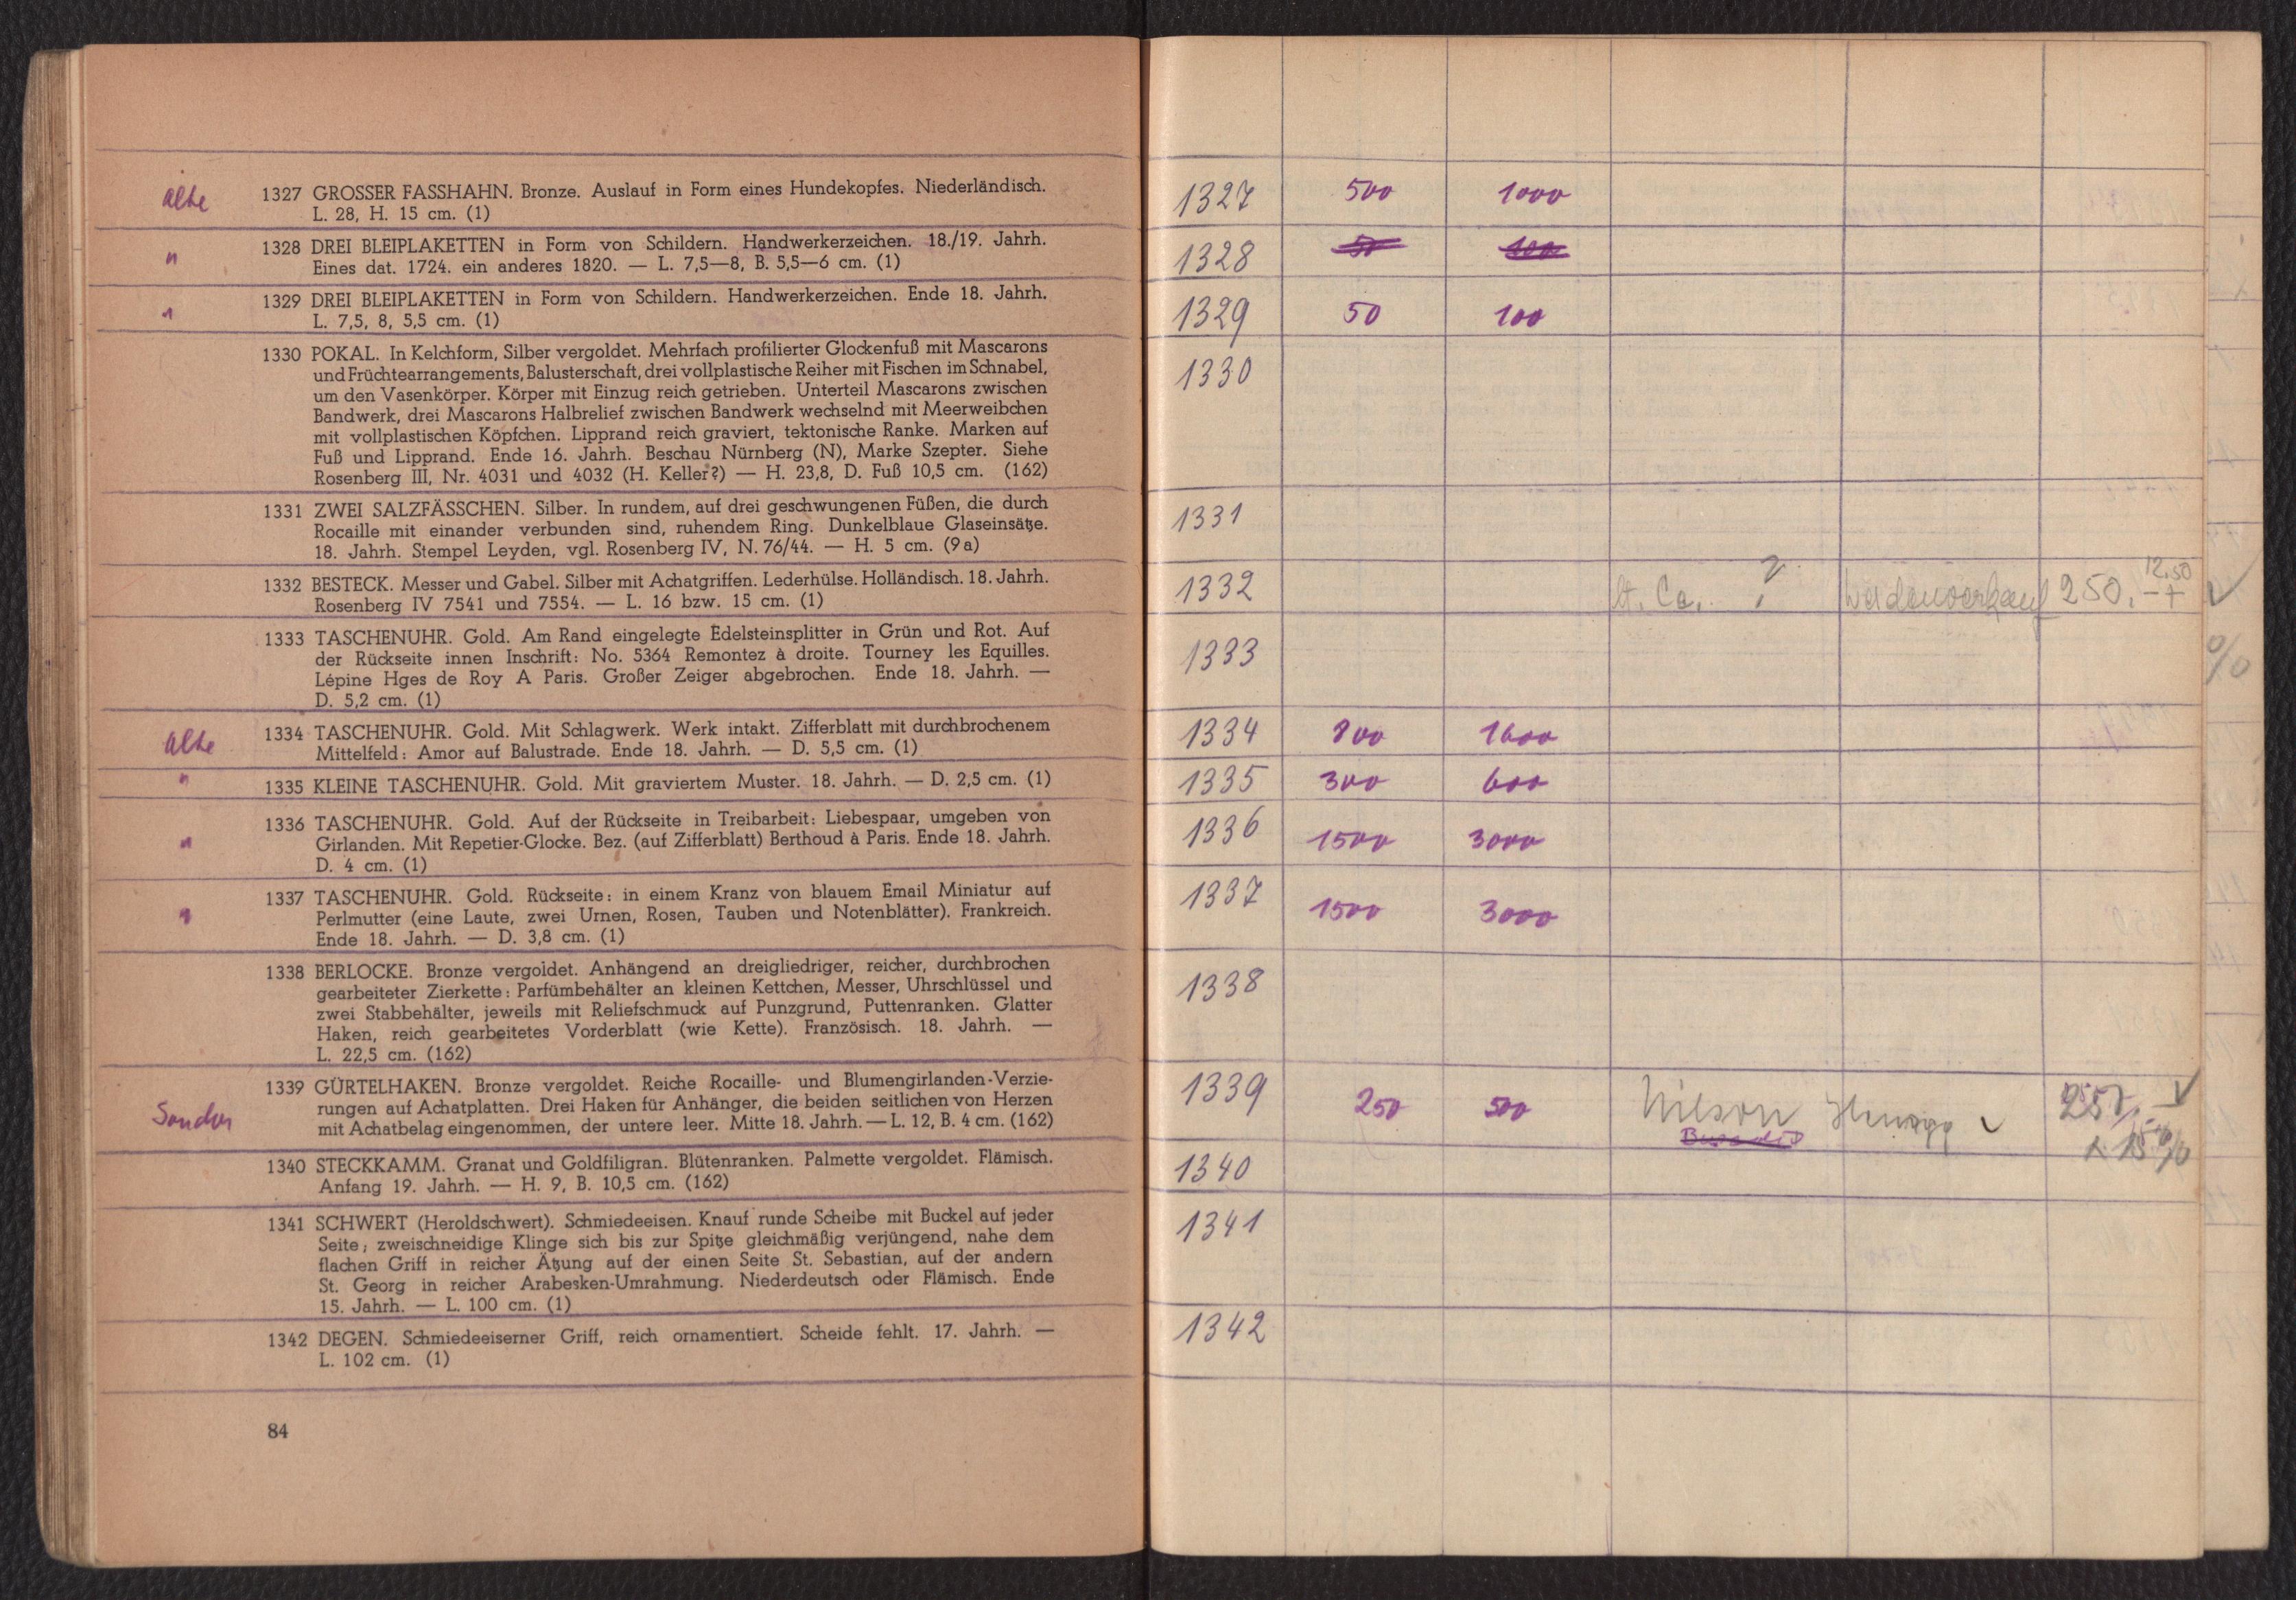 alte
1327 GROSSER FASSHAHN. Bronze. Auslauf in Form eines Hundekopfes. Niederländisch.
L. 28, H. 15 cm. (1)
"
1328 DREI BLEIPLAKETTEN in Form von Schildern. Handwerkerzeichen. 18./19. Jahrh.
Eines dat. 1724. ein anderes 1820. — L. 7,5—8, B. 5,5—6 cm. (1)
"
1329 DREI BLEIPLAKETTEN in Form von Schildern. Handwerkerzeichen. Ende 18. Jahrh.
L. 7,5, 8, 5,5 cm. (1)
1330 POKAL. In Kelchform, Silber vergoldet. Mehrfach profilierter Glockenfuß mit Mascarons
und Früchtearrangements, Balusterschaft, drei vollplastische Reiher mit Fischen im Schnabel,
um den Vasenkörper. Körper mit Einzug reich getrieben. Unterteil Mascarons zwischen
Bandwerk, drei Mascarons Halbrelief zwischen Bandwerk wechselnd mit Meerweibchen
mit vollplastischen Köpfchen. Lipprand reich graviert, tektonische Ranke. Marken auf
Fuß und Lipprand. Ende 16. Jahrh. Beschau Nürnberg (N), Marke Szepter. Siehe
Rosenberg III, Nr. 4031 und 4032 (H. Keller?) — H. 23,8, D. Fuß 10,5 cm. (162)
1331 ZWEI SALZFÄSSCHEN. Silber. In rundem, auf drei geschwungenen Füßen, die durch
Rocaille mit einander verbunden sind, ruhendem Ring. Dunkelblaue Glaseinsätze.
18. Jahrh. Stempel Leyden, vgl. Rosenberg IV, N. 76/44. — H. 5 cm. (9a)
1332 BESTECK. Messer und Gabel. Silber mit Achatgriffen. Lederhülse. Holländisch. 18. Jahrh.
Rosenberg IV 7541 und 7554. — L. 16 bzw. 15 cm. (1)
1333 TASCHENUHR. Gold. Am Rand eingelegte Edelsteinsplitter in Grün und Rot. Auf
der Rückseite innen Inschrift: No. 5364 Remontez à droite. Tourney les Equilles.
Lépine Hges de Roy A Paris. Großer Zeiger abgebrochen. Ende 18. Jahrh. —
D. 5,2 cm. (1)
alte
1334 TASCHENUHR. Gold. Mit Schlagwerk. Werk intakt. Zifferblatt mit durchbrochenem
Mittelfeld: Amor auf Balustrade. Ende 18. Jahrh. — D. 5,5 cm. (1)
"
1335 KLEINE TASCHENUHR. Gold. Mit graviertem Muster. 18. Jahrh. — D. 2,5 cm. (1)
"
1336 TASCHENUHR. Gold. Auf der Rückseite in Treibarbeit: Liebespaar, umgeben von
Girlanden. Mit Repetier-Glocke. Bez. (auf Zifferblatt) Berthoud à Paris. Ende 18. Jahrh.
D. 4 cm. (1)
"
1337 TASCHENUHR. Gold. Rückseite: in einem Kranz von blauem Email Miniatur auf
Perlmutter (eine Laute, zwei Urnen, Rosen, Tauben und Notenblätter). Frankreich.
Ende 18. Jahrh. — D. 3,8 cm. (1)
1338 BERLOCKE. Bronze vergoldet. Anhängend an dreigliedriger, reicher, durchbrochen
gearbeiteter Zierkette: Parfümbehälter an kleinen Kettchen, Messer, Uhrschlüssel und
zwei Stabbehälter, jeweils mit Reliefschmuck auf Punzgrund, Puttenranken. Glatter
Haken, reich gearbeitetes Vorderblatt (wie Kette). Französisch. 18. Jahrh. —
L. 22,5 cm. (162)
1339 GÜRTELHAKEN. Bronze vergoldet. Reiche Rocaille- und Blumengirlanden-Verzie-
rungen auf Achatplatten. Drei Haken für Anhänger, die beiden seitlichen von Herzen
mit Achatbelag eingenommen, der untere leer. Mitte 18. Jahrh. — L. 12, B. 4 cm. (162)
1340 STECKKAMM. Granat und Goldfiligran. Blütenranken. Palmette vergoldet. Flämisch.
Anfang 19. Jahrh. — H. 9, B. 10,5 cm. (162)
1341 SCHWERT (Heroldschwert). Schmiedeeisen. Knauf runde Scheibe mit Buckel auf jeder
Seite; zweischneidige Klinge sich bis zur Spitze gleichmäßig verjüngend, nahe dem
flachen Griff in reicher Ätzung auf der einen Seite St. Sebastian, auf der andern
St. Georg in reicher Arabesken-Umrahmung. Niederdeutsch oder Flämisch. Ende
15. Jahrh. — L. 100 cm. (1)
1342 DEGEN. Schmiedeeiserner Griff, reich ornamentiert. Scheide fehlt. 17. Jahrh. —
L. 102 cm. (1)
84
1327 500 1000
1328 50 100
1329 50 100
1330
1331
1332 lt. Ca. ? 250.- 12,50
1333 %
1334 800 1600
1335 300 600
1336 1500 3000
1337 1500 3000
1338
1339 250 500 Nilson 250,-
15%
1340
1341
1342